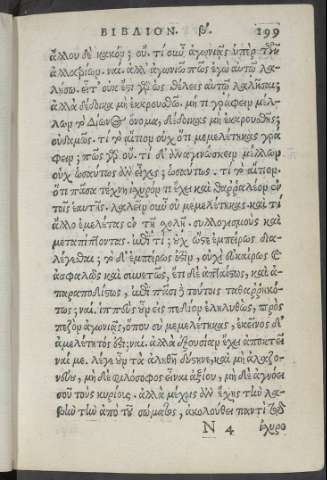 ΒΙΒΛΙΟΝ. β'. 199
ἄλλου δὲ κακόν; οὔ. τί οὖν ἀγωνιᾷς ὑπὲρ τῶν
ἀλλοτρίων. ναί. ἀλλ' ἀγωνιῶ πῶς ἐγὼ αὐτῷ λα-
λήσω. εἶτ' οὐκ ἔστι γὰρ ὡς θέλεις αὐτῷ λαλῆσαι;
ἀλλὰ δέδοικα μὴ ἐκκρουσθῶ. μή τι γράφειν μέλ-
λων τὸ Δίωνος ὄνομα, δέδοικας μὴ ἐκκρουσθῇς;
οὐδαμῶς. τί τὸ αἴτιον οὐχ ὅτι μεμελέτηκας γρά-
φειν; πῶς γὰρ οὔ. τί δ' ἀναγινώσκειν μέλλων
οὐχ ὡσαύτως ἂν εἶχες; ὡσαύτως. τί τὸ αἴτιον.
ὅτι πᾶσα τέχνη ἰσχυρόν τι ἔχει καὶ θαρραλέον ἐν
τοῖς ἑαυτῆς. λαλεῖν οὖν οὐ μεμελέτηκας. καὶ τί
ἄλλο ἐμελέτας ἐν τῇ σχολῇ. συλλογισμοὺς καὶ
μεταπίπτοντας. ἐπὶ τί; οὐχ ὥστε ἐμπείρως δια-
λέγεσθαι; τὸ δ' ἐμπείρως ἐστὶν, οὐχὶ εὐκαίρως καὶ
ἀσφαλῶς καὶ συνετῶς, ἔτι δὲ ἀπταίστως, καὶ ἀ-
παραποδίστως, ἐπὶ πᾶσι δὲ τούτοις τεθαρρηκό-
τως; ναί. ἱππεὺς οὖν εἰς πεδίον ἐληλυθὼς, πρὸς
πεζὸν ἀγωνιᾷς, ὅπου σὺ μεμελέτηκας, ἐκεῖνος δ'
ἀμελέτητός ἐστι; ναί. ἀλλὰ ἐξουσίαν ἔχει ἀποκτεῖ-
ναί με. λέγε οὖν τὰ ἀληθῆ δύστηνε, καὶ μὴ ἀλαζο-
νεύου, μηδὲ φιλόσοφος εἶναι ἀξίου, μηδὲ ἀγνόει
σου τοὺς κυρίους. ἀλλὰ μέχρις ἂν ἔχῃς τὴν λα-
βὴν τὴν ἀπὸ τοῦ σώματος, ἀκολούθει παντὶ τῷ
N 4 ἰσχυρο